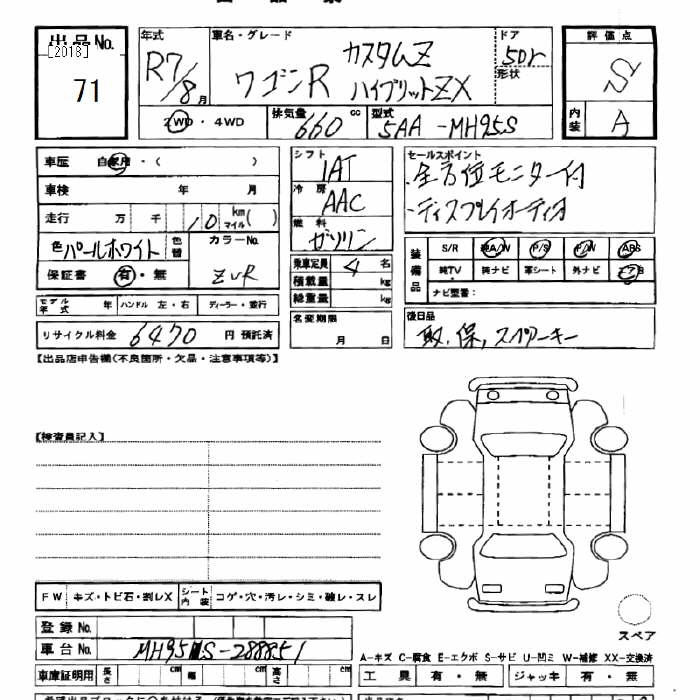 出品No.
[2013]
71
年式
R7/8月
車名・グレード
ワゴンR
カスタムZ
ハイブリットZX
ドア
5Dr
形状
評価点
S
内装
A
2WD・4WD
排気量
660 cc
型式
5AA-MH95S
車歴
自家用・( )
車検 年 月
走行 万 千 10 km マイル( )
色 パールホワイト 色替
カラーNo.
ZVR
保証書 有・無
モデル年式 年 ハンドル 左・右 ディーラー・並行
リサイクル料金 6470 円 預託済
シフト
IAT
冷房
AAC
燃料
ガソリン
乗車定員 4 名
積載量 kg
総重量 kg
名変期限
月 日
セールスポイント
・全方位モニター付
・ディスプレイオーディオ
装備品
S/R 純A/W P/S P/W ABS
純TV・ 純ナビ 革シート 外ナビ
ナビ型番:
後日品
取, 保, スペアキー
【出品店申告欄(不良箇所・欠品・注意事項等)】
【検査員記入】
FW キズ・トビ石・割レX シート内装 コゲ・穴・汚レ・シミ・破レ・スレ
登録No.
車台No. MH95S-288851
車庫証明用 長さ cm 幅 cm 高さ cm
スペア
A-キズ C-腐食 E-エクボ S-サビ U-凹ミ W-補修 XX-交換済
工具 有・無 ジャッキ 有・無